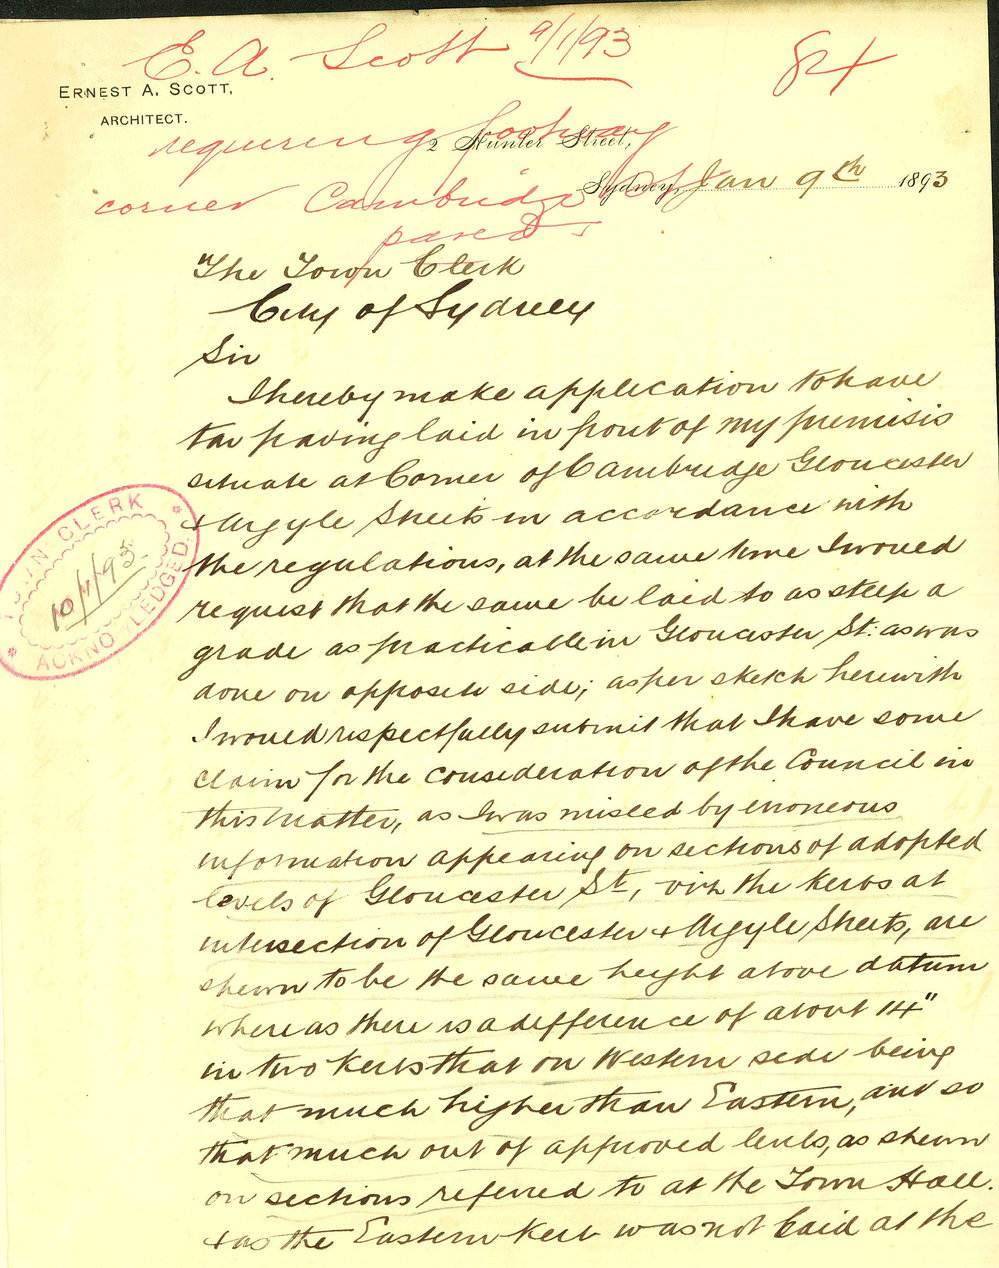 E. A. Scott 9/1/93
84
ERNEST A. SCOTT,
ARCHITECT.
requiring footway
2 Hunter Street,
Sydney, Jan 9th 1893
corner Cambridge St
paved
The Town Clerk
City of Sydney
Sir
I hereby make application to have
tar paving laid in front of my premisis
situate at Corner of Cambridge Gloucester
& Argyle Streets in accordance with
the regulations, at the same time I would
request that the same be laid to as steep a
grade as practicable in Gloucester St: as was
done on opposite side; as per sketch herewith
I would respectfully submit that I have some
claim for the consideration of the Council in
this matter, as I was misled by erroneous
information appearing on sections of adopted
levels of Gloucester St, viz the kerbs at
intersection of Gloucester & Argyle Streets, are
shewn to be the same height above datum
whereas there is a difference of about 14"
in two kerbs that on Western side being
that much higher than Eastern, and so
that much out of approved levels, as shewn
on sections referred to at the Town Hall.
& as the Eastern kerb was not laid at the
TOWN CLERK
10/1/93
ACKNOWLEDGED.